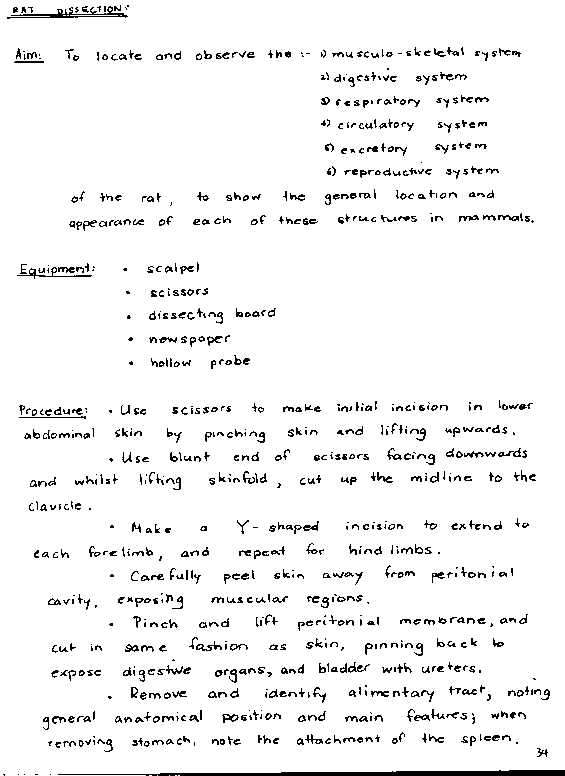 RAT DISSECTION:
Aim: To locate and observe the :- 1) musculo-skeletal system
2) digestive system
3) respiratory system
4) circulatory system
5) excretory system
6) reproductive system
of the rat, to show the general location and
appearance of each of these structures in mammals.
Equipment: • scalpel
• scissors
• dissecting board
• newspaper
• hollow probe
Procedure: • Use scissors to make initial incision in lower
abdominal skin by pinching skin and lifting upwards.
• Use blunt end of scissors facing downwards
and whilst lifting skinfold, cut up the midline to the
clavicle.
• Make a Y-shaped incision to extend to
each forelimb, and repeat for hind limbs.
• Carefully peel skin away from peritonial
cavity, exposing muscular regions.
• Pinch and lift peritonial membrane, and
cut in same fashion as skin, pinning back to
expose digestive organs, and bladder with ureters.
• Remove and identify alimentary tract, noting
general anatomical position and main features; when
removing stomach, note the attachment of the spleen.
34